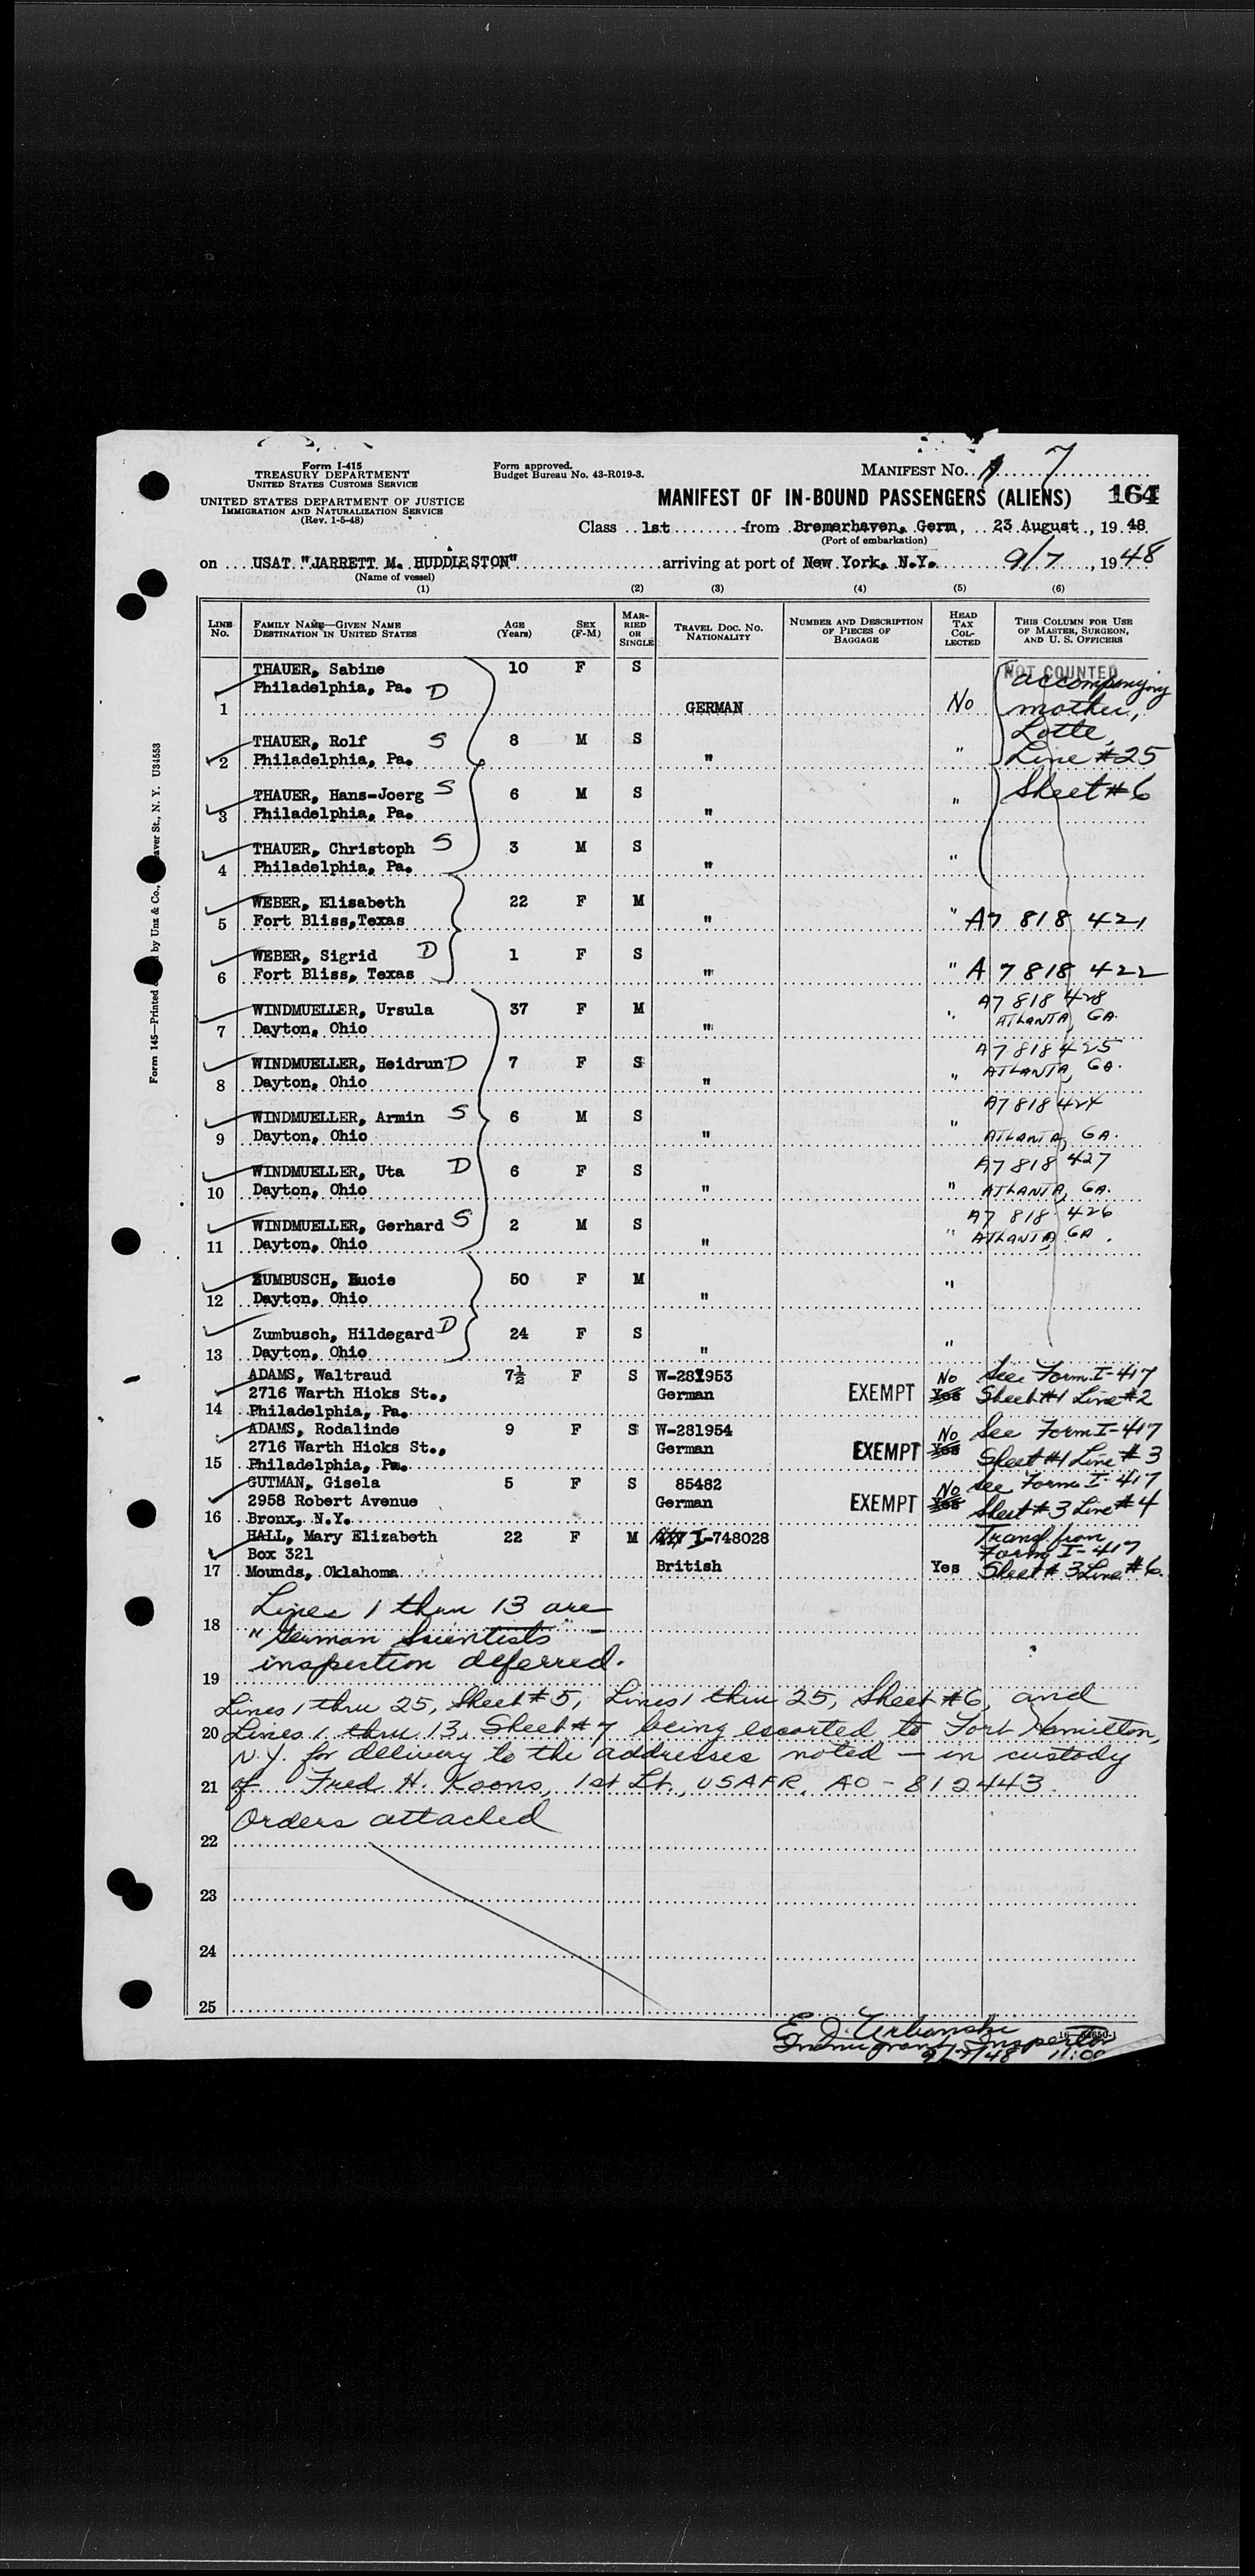 Form I-415
TREASURY DEPARTMENT
UNITED STATES CUSTOMS SERVICE
UNITED STATES DEPARTMENT OF JUSTICE
IMMIGRATION AND NATURALIZATION SERVICE
(Rev. 1-5-48)
Form approved.
Budget Bureau No. 43-R019-3.
MANIFEST No. 7
MANIFEST OF IN-BOUND PASSENGERS (ALIENS) 164
Class 1st from Bremerhaven, Germ, 23 August, 19 48
(Port of embarkation)
on USAT "JARRETT M. HUDDLESTON" arriving at port of New York, N.Y. 9/7, 1948
(Name of vessel)
(1) (2) (3) (4) (5) (6)
LINE No. FAMILY NAME—GIVEN NAME DESTINATION IN UNITED STATES AGE (Years) SEX (F-M) MARRIED OR SINGLE TRAVEL DOC. NO. NATIONALITY NUMBER AND DESCRIPTION OF PIECES OF BAGGAGE HEAD TAX COLLECTED THIS COLUMN FOR USE OF MASTER, SURGEON, AND U. S. OFFICERS
THAUER, Sabine 10 F S NOT COUNTED
Philadelphia, Pa. D accompanying
1 GERMAN No mother,
THAUER, Rolf S 8 M S Lotte,
2 Philadelphia, Pa. " " Line #25
THAUER, Hans-Joerg S 6 M S Sheet #6
3 Philadelphia, Pa. " "
THAUER, Christoph S 3 M S "
4 Philadelphia, Pa. "
WEBER, Elisabeth 22 F M
5 Fort Bliss,Texas " " A7 818 421
WEBER, Sigrid D 1 F S
6 Fort Bliss, Texas " " A 7 818 422
WINDMUELLER, Ursula 37 F M A7 818 428
7 Dayton, Ohio " " ATLANTA, GA.
WINDMUELLER, Heidrun D 7 F S A7 818 425
8 Dayton, Ohio " " ATLANTA, GA.
WINDMUELLER, Armin S 6 M S A7 818 424
9 Dayton, Ohio " " ATLANTA, GA.
WINDMUELLER, Uta D 6 F S A7 818 427
10 Dayton, Ohio " " ATLANTA, GA.
WINDMUELLER, Gerhard S 2 M S A7 818 426
11 Dayton, Ohio " " ATLANTA GA.
ZUMBUSCH, Lucie 50 F M "
12 Dayton, Ohio "
Zumbusch, Hildegard D 24 F S "
13 Dayton, Ohio "
ADAMS, Waltraud 7½ F S W-281953 No See Form I-417
2716 Warth Hicks St., German EXEMPT Yes Sheet #1 Line #2
14 Philadelphia, Pa.
ADAMS, Rodalinde 9 F S W-281954 No See Form I-417
2716 Warth Hicks St., German EXEMPT Yes Sheet #1 Line #3
15 Philadelphia, Pa.
GUTMAN, Gisela 5 F S 85482 No See Form I-417
2958 Robert Avenue German EXEMPT Yes Sheet #3 Line #4
16 Bronx, N.Y.
HALL, Mary Elizabeth 22 F M I-748028 Transf from
Box 321 Form I-417
17 Mounds, Oklahoma British Yes Sheet #3 Line #6
Lines 1 thru 13 are
18
"German Scientists" —
inspection deferred.
19
Lines 1 thru 25, Sheet #5, Lines 1 thru 25, Sheet #6, and
20 Lines 1 thru 13, Sheet #7 being escorted to Fort Hamilton,
N.Y. for delivery to the addresses noted — in custody
21 of Fred H. Koons, 1st Lt., USAFR, AO-812443.
Orders attached
22
23
24
25
E. J. Urbanski
Immigrant Inspector
9/7/48 11:00
Form 145—Printed by Unz & Co., aver St., N. Y. U34553